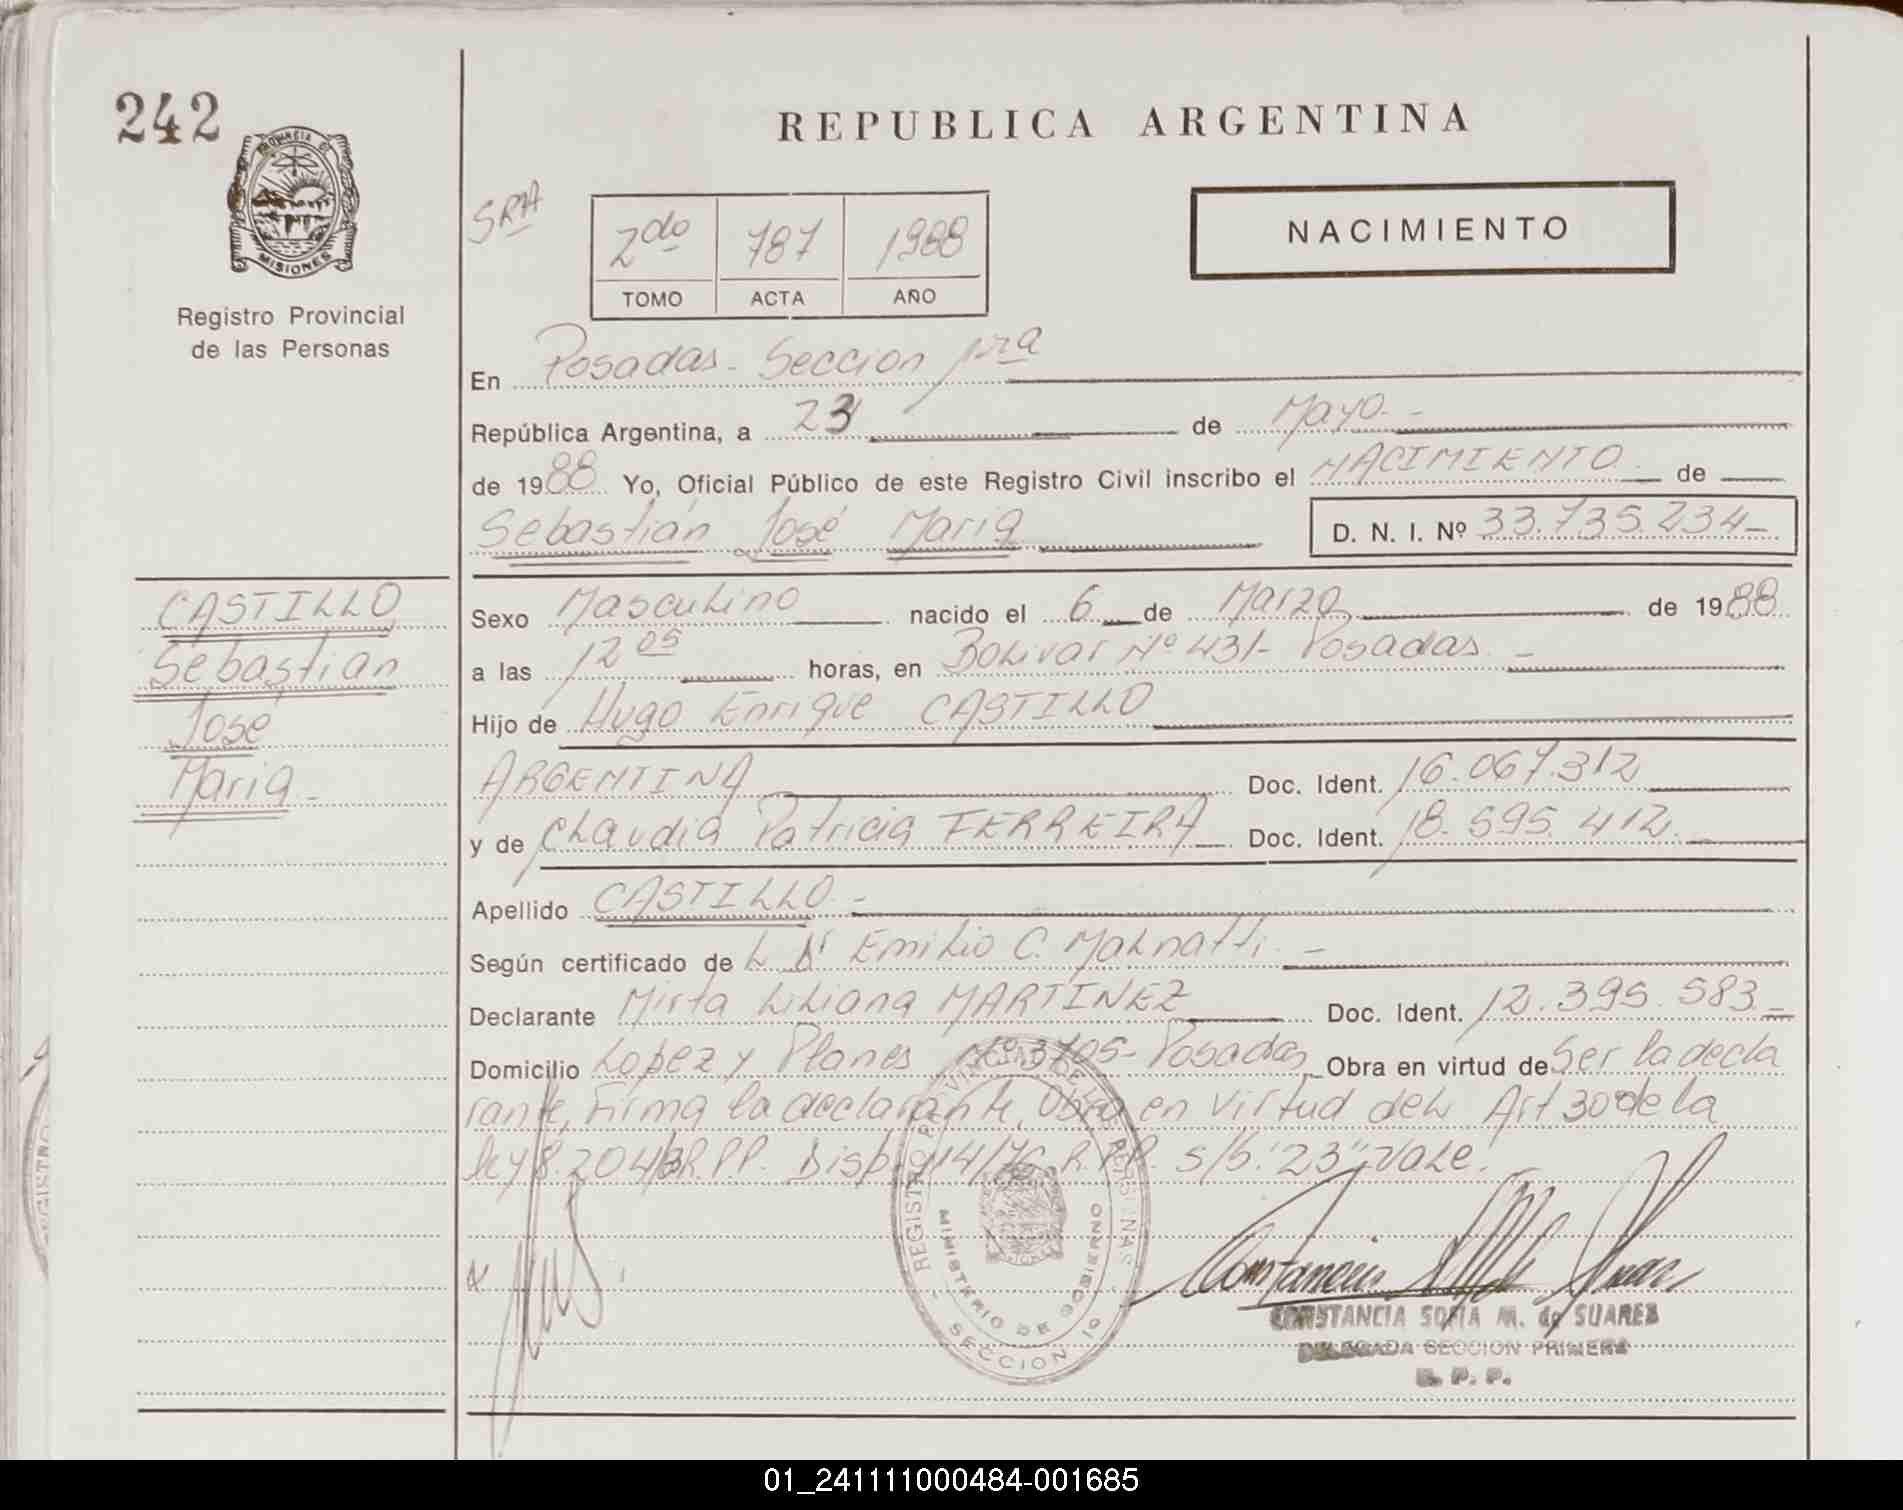 242
PROVINCIA DE
MISIONES
Registro Provincial
de las Personas
REPUBLICA ARGENTINA
NACIMIENTO
2do 787 1988
TOMO ACTA AÑO
En Posadas - Seccion 1ra
República Argentina, a 23 de Mayo -
de 1988 Yo, Oficial Público de este Registro Civil inscribo el NACIMIENTO de
Sebastián José Maria D. N. I. Nº 33.735.234-
CASTILLO
Sebastián
José
Maria -
Sexo Masculino nacido el 6 de Marzo de 1988
a las 12 05 horas, en Bolivar Nº 431- Posadas -
Hijo de Hugo Enrique CASTILLO
ARGENTINA Doc. Ident. 16.067.312
y de Claudia Patricia FERREIRA Doc. Ident. 18.595.412
Apellido CASTILLO -
Según certificado de L Dr Emilio C. Malnatti -
Declarante Mirta Liliana MARTINEZ Doc. Ident. 12.395.583 -
Domicilio Lopez y Planes Nº 3705- Posadas Obra en virtud de Ser la decla
rante, Firma la declarante, Obra en virtud del Art 30 de la
ley 8.204/ R.PP. Disp. 14/76 R.PP. s/b. "23" Vale.
REGISTRO PROVINCIAL DE LAS PERSONAS
MINISTERIO DE GOBIERNO
SECCION 1º
CONSTANCIA SOFIA M. de SUAREZ
DELEGADA SECCION PRIMERA
R. P. P.
01_241111000484-001685